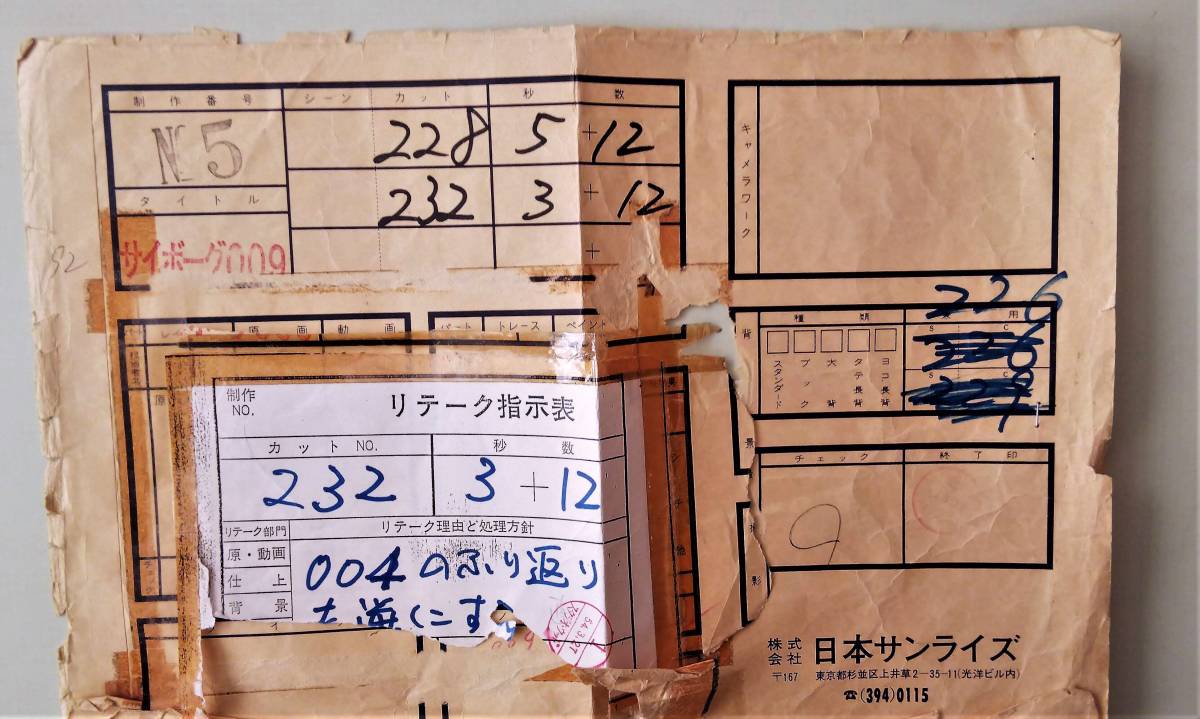 制作番号 シーン カット 秒 数
№5 228 5+12
232 3+12
タイトル
サイボーグ009
+
92
キャメラワーク
原画 動画
パート トレース ペイント
背景
種類
スタンダード
ブック
大背
タテ長背
ヨコ長背
用
S C
226
S C
チェック 終了印
制作NO. リテーク指示表
カットNO. 秒数
232 3+12
リテーク部門 リテーク理由と処理方針
原・動画 004のふり返り
仕上
背景
株式会社 日本サンライズ
〒167 東京都杉並区上井草2-35-11(光洋ビル内)
☎(394)0115